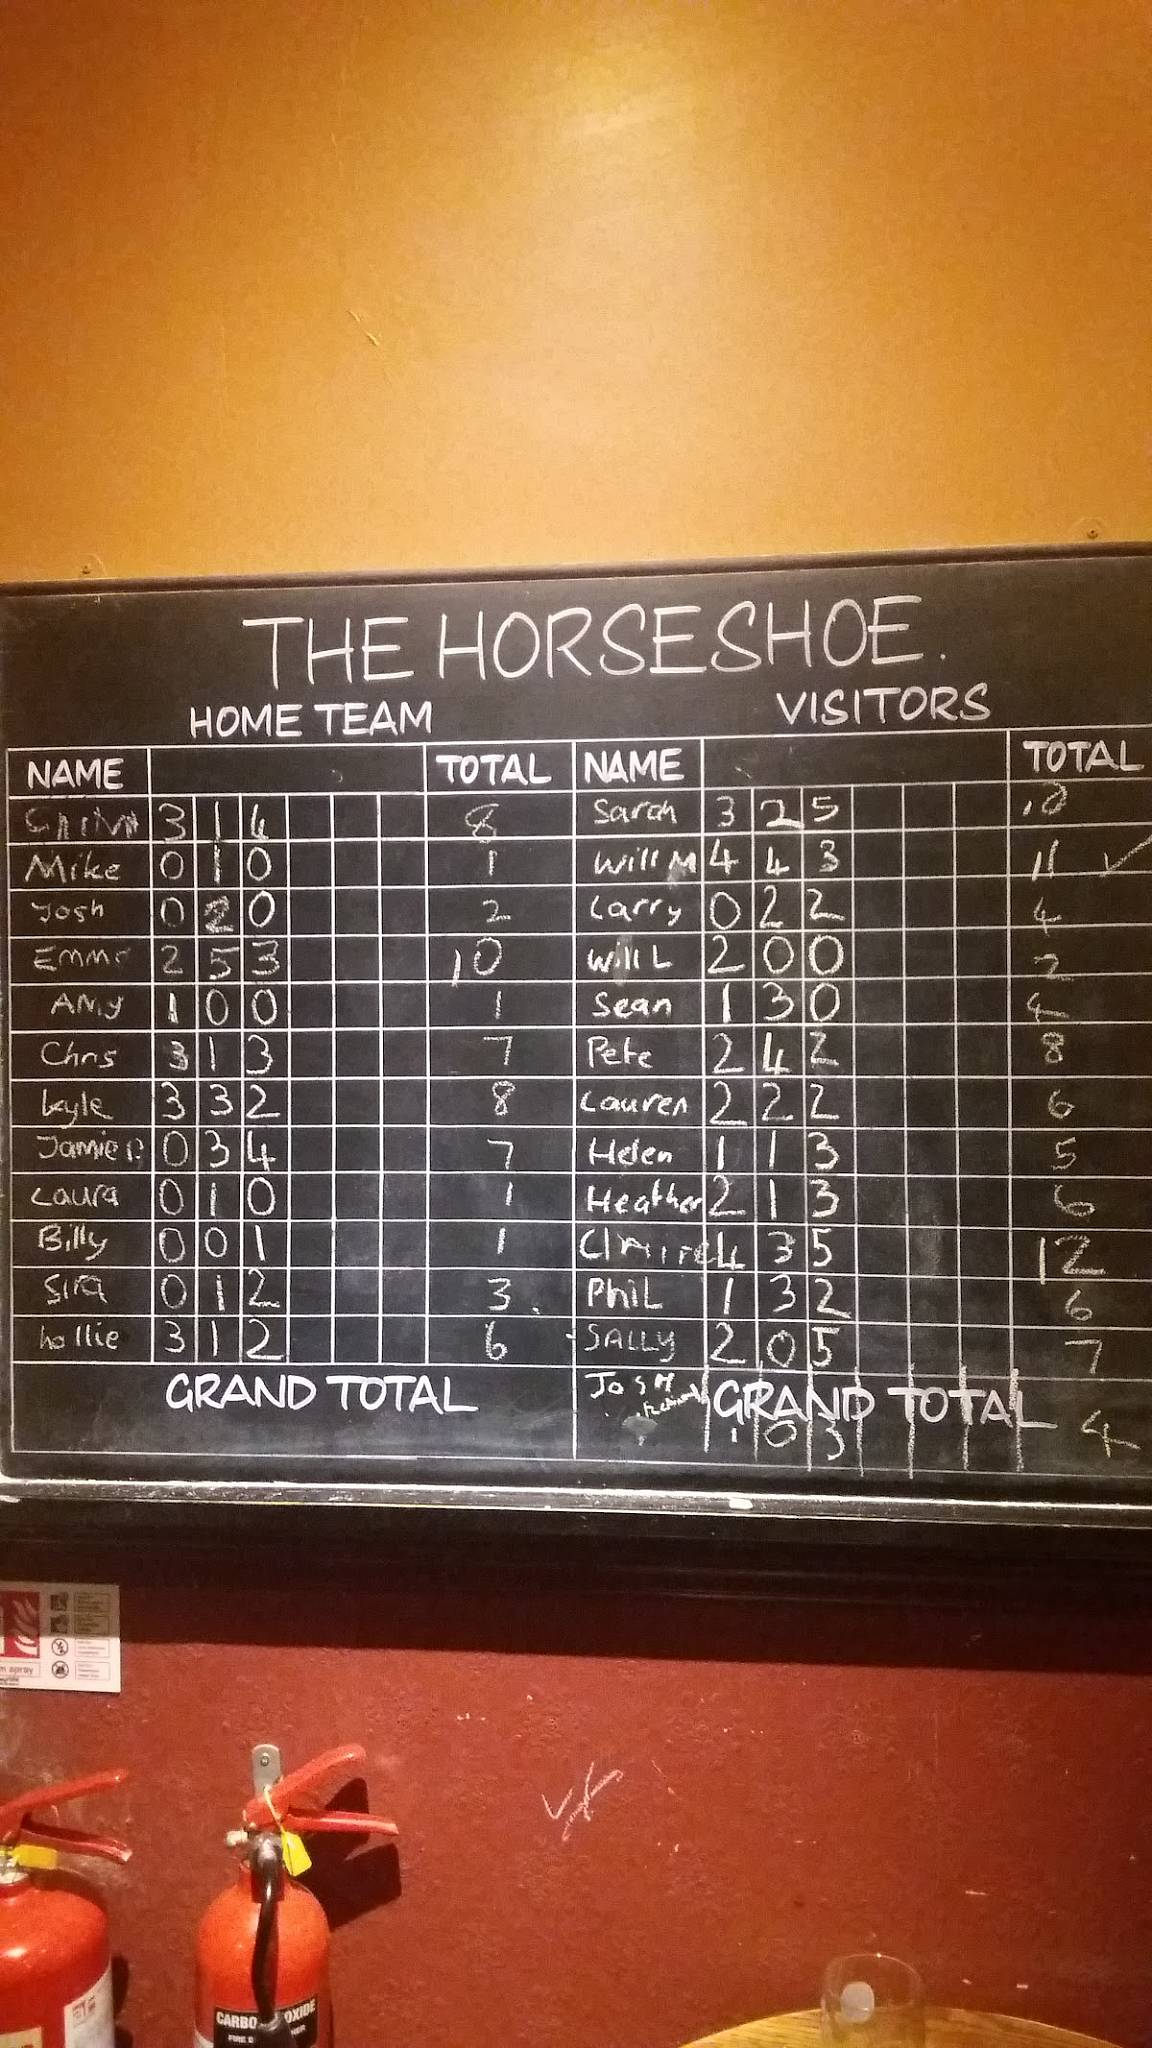 THE HORSESHOE.
HOME TEAM VISITORS
NAME TOTAL NAME TOTAL
3 1 4 8 Sarah 3 2 5 10
Mike 0 1 0 1 Will M 4 4 3 11 ✓
Josh 0 2 0 2 Larry 0 2 2 4
Emma 2 5 3 10 Will L 2 0 0 2
Amy 1 0 0 1 Sean 1 3 0 4
Chris 3 1 3 7 Pete 2 4 2 8
Kyle 3 3 2 8 Lauren 2 2 2 6
Jamie 0 3 4 7 Helen 1 1 3 5
Laura 0 1 0 1 Heather 2 1 3 6
Billy 0 0 1 1 Claire 4 3 5 12
Sira 0 1 2 3 PhiL 1 3 2 6
hollie 3 1 2 6 SALLY 2 0 5 7
GRAND TOTAL JOSH GRAND TOTAL
1 0 3 4
spray
CARBON DIOXIDE